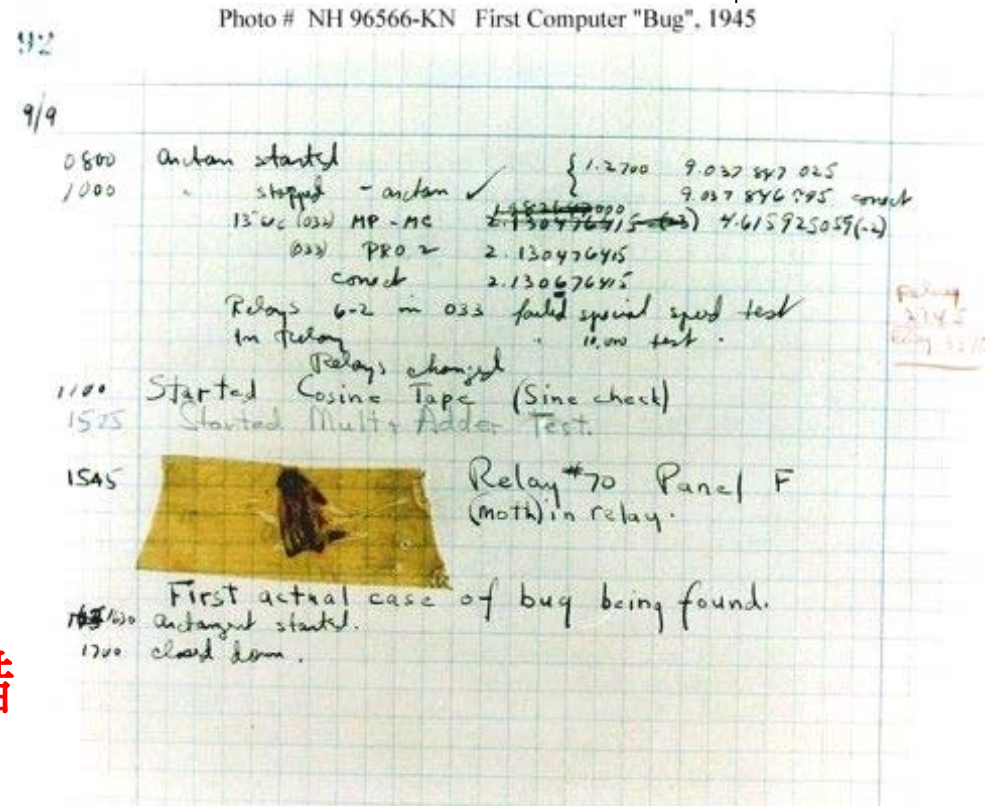 Photo # NH 96566-KN First Computer "Bug", 1945
92
9/9
0800 arctan started { 1.2700 9.037 847 025
1000 " stopped - arctan ✓ 9.037 846 995 correct
13"uc (032) MP - MC 2.130476415 (-3) 4.615925059(-2)
(033) PRO 2 2.130476415
correct 2.130676415
Relays 6-2 in 033 failed special speed test
In Relay " 10,000 test.
Relays changed
1100 Started Cosine Tape (Sine check)
1525 Started Mult + Adder Test.
1545 Relay #70 Panel F
(moth) in relay.
First actual case of bug being found.
1630 arctangent started.
1700 closed down.